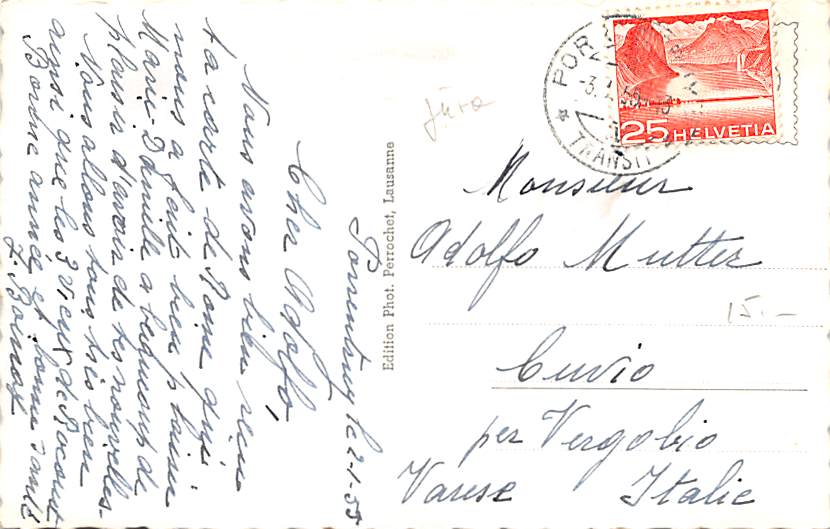 Porrentruy le 2-1-55
Cher Adolfo,
Nous avons bien reçu
ta carte de Rome qui
nous a fait bien plaisir
Marie-Danielle a beaucoup de
plaisir d'avoir de tes nouvelles-
Nous allons tous très bien
ainsi que les 3 vieux de Rocourt
Bonne année et bonne santé
Edition Phot. Perrochet, Lausanne
Jura
POR
-3.
TRANSIT
25 HELVETIA
Monsieur
Adolfo Mutter
15.-
Cuvio
per Vergobio
Varese Italie